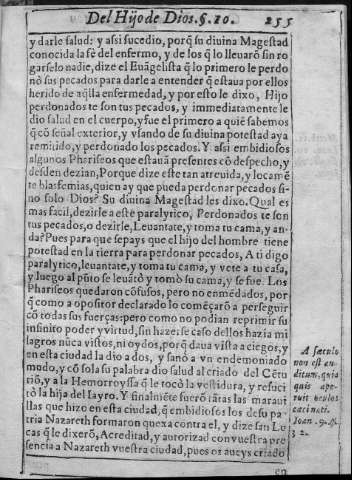 Del Hijo de Dios. §. 10. 255
y darle salud: y assi sucedio, porq̃ su diuina Magestad
conocida la fè del enfermo, y de los q̃ lo lleuarõ sin ro
garselo nadie, dize el Euãgelista q̃ lo primero le perdo
nò sus pecados para darle a entender q̃ estaua por ellos
herido de aq̃lla enfermedad, y por esto le dixo, Hijo
perdonados te son tus pecados, y immediatamente le
dio salud en el cuerpo, y fue el primero a quiẽ sabemos
q̃ cõ señal exterior, y vsando de su diuina potestad aya
remitido, y perdonado los pecados. Y assi embidiosos
algunos Phariseos que estauã presentes cõ despecho, y
desden dezian, Porque dize este tan atreuida, y locamẽ
te blasfemias, quien ay que pueda perdonar pecados si-
no solo Dios? Su diuina Magestad les dixo. Qual es
mas facil, dezirle a este paralytico, Perdonados te son
tus pecados, o dezirle, Leuantate, y toma tu cama, y an-
da? Pues para que sepays que el hijo del hombre tiene
potestad en la tierra para perdonar pecados, A ti digo
paralytico, leuantate, y toma tu cama, y vete a tu casa,
y luego al pũto se leuãtò y tomò su cama, y se fue. Los
Phariseos quedaron cõfusos, pero no enmẽdados, por
q̃ como a opositor declarado lo comẽçarõ a perseguir
cõ todas sus fuerças: pero como no podian reprimir su
infinito poder y virtud, sin hazerse caso dellos hazia mi
lagros nũca vistos, ni oydos, porq̃ daua vista a ciegos, y
en esta ciudad la dio a dos, y sanò a vn endemoniado
mudo, y cõ sola su palabra dio salud al criado del Cẽtu
riõ, y a la Hemorroyssa q̃ le tocò la vestidura, y resuci
tò la hija del Iayro. Y finalmẽte fuerõ tãtas las maraui
llas que hizo en esta ciudad, q̃ embidiosos los de su pa-
tria Nazareth formaron quexa contra el, y dize san Lu
cas q̃ le dixerõ, Acreditad, y autorizad con vuestra pre
sencia a Nazareth vuestra ciudad, pues os aueys criado
en
A sæculo
non est au
ditum, quia
quis ape-
ruit oculos
cæci nati.
Ioan. 9. q̃.
32.